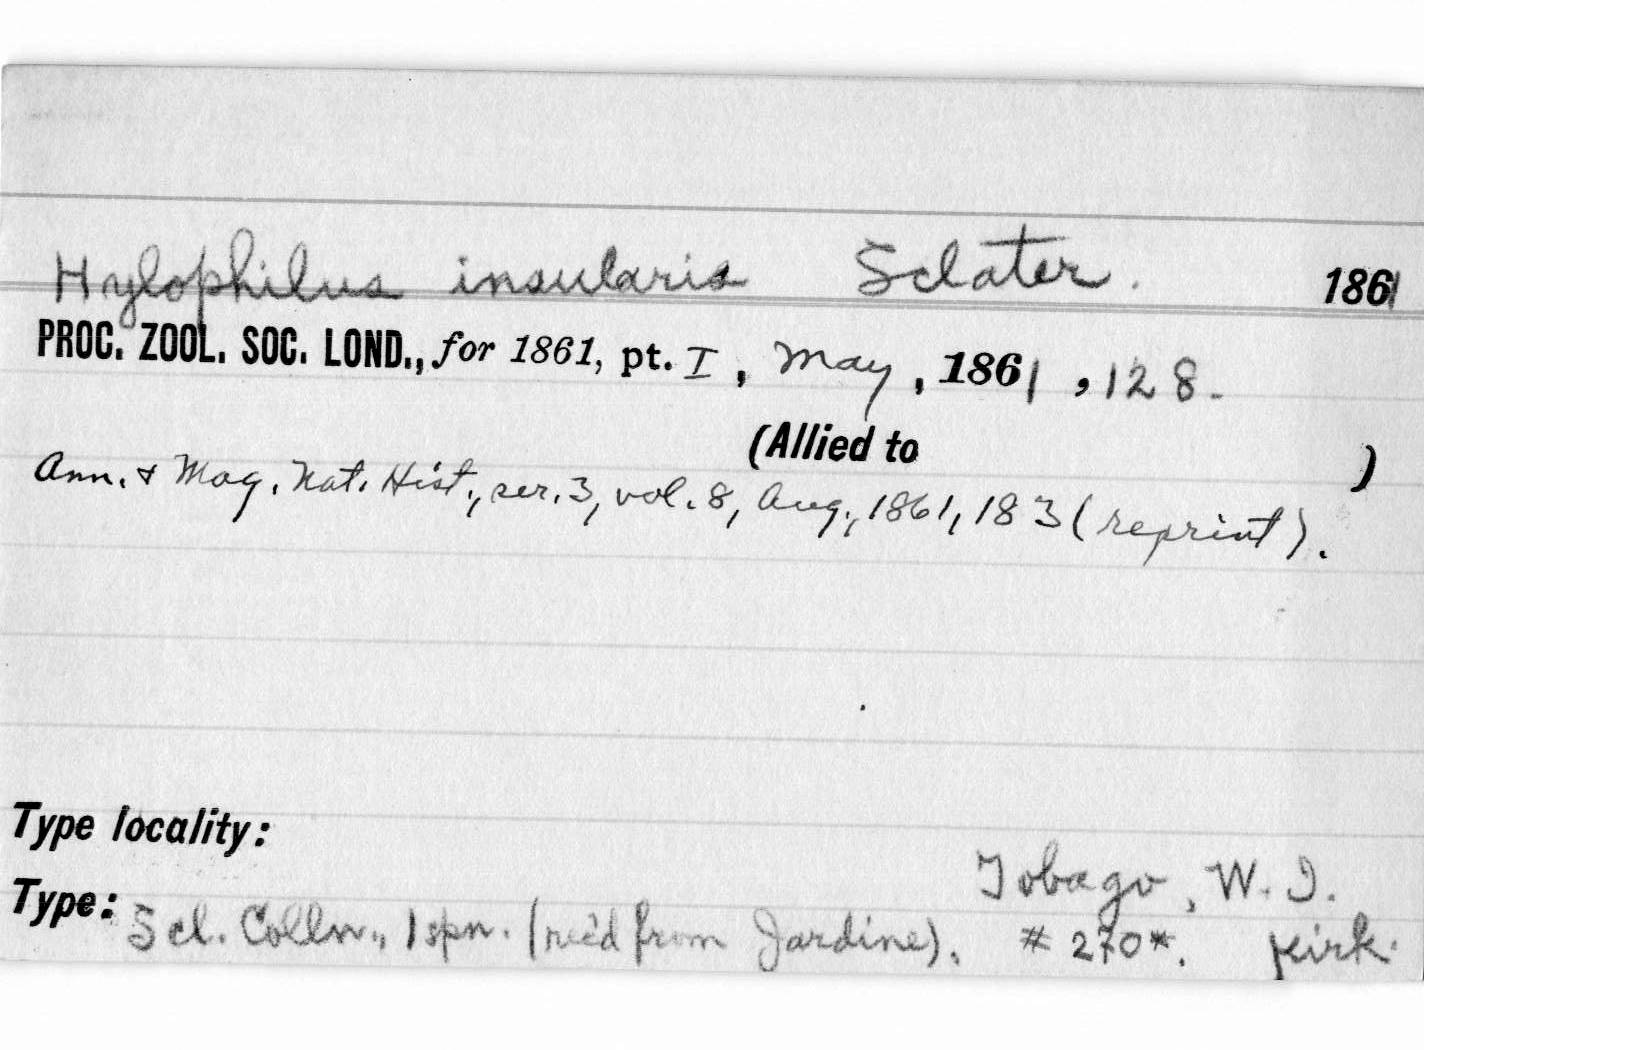 Hylophilus insularis Sclater. 1861
PROC. ZOOL. SOC. LOND., for 1861, pt. I, May, 1861, 128.
(Allied to )
Ann. & Mag. Nat. Hist., ser. 3, vol. 8, Aug., 1861, 183 (reprint).
Type locality:
Tobago, W. I.
Type: Scl. Colln., 1 spn. (rec'd from Jardine). # 270*. Kirk.